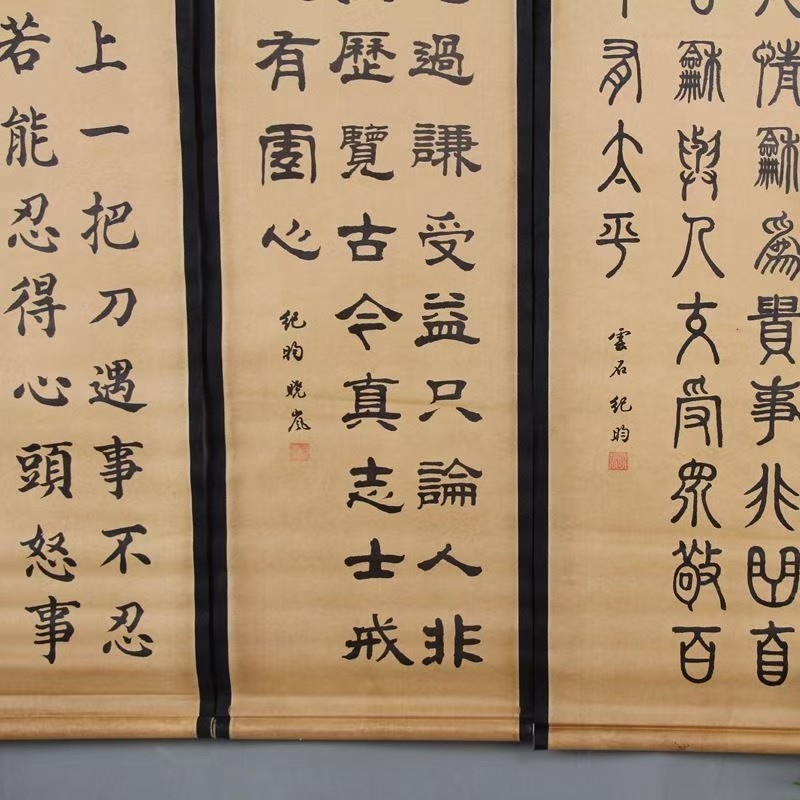 情龢為貴事非曲直
龢與人交受眾敬百
有太平
雲石紀昀
過謙受益只論人非
歷覽古今真志士戒
有心
紀昀晓嵐
上一把刀遇事不忍
若能忍得心頭怒事